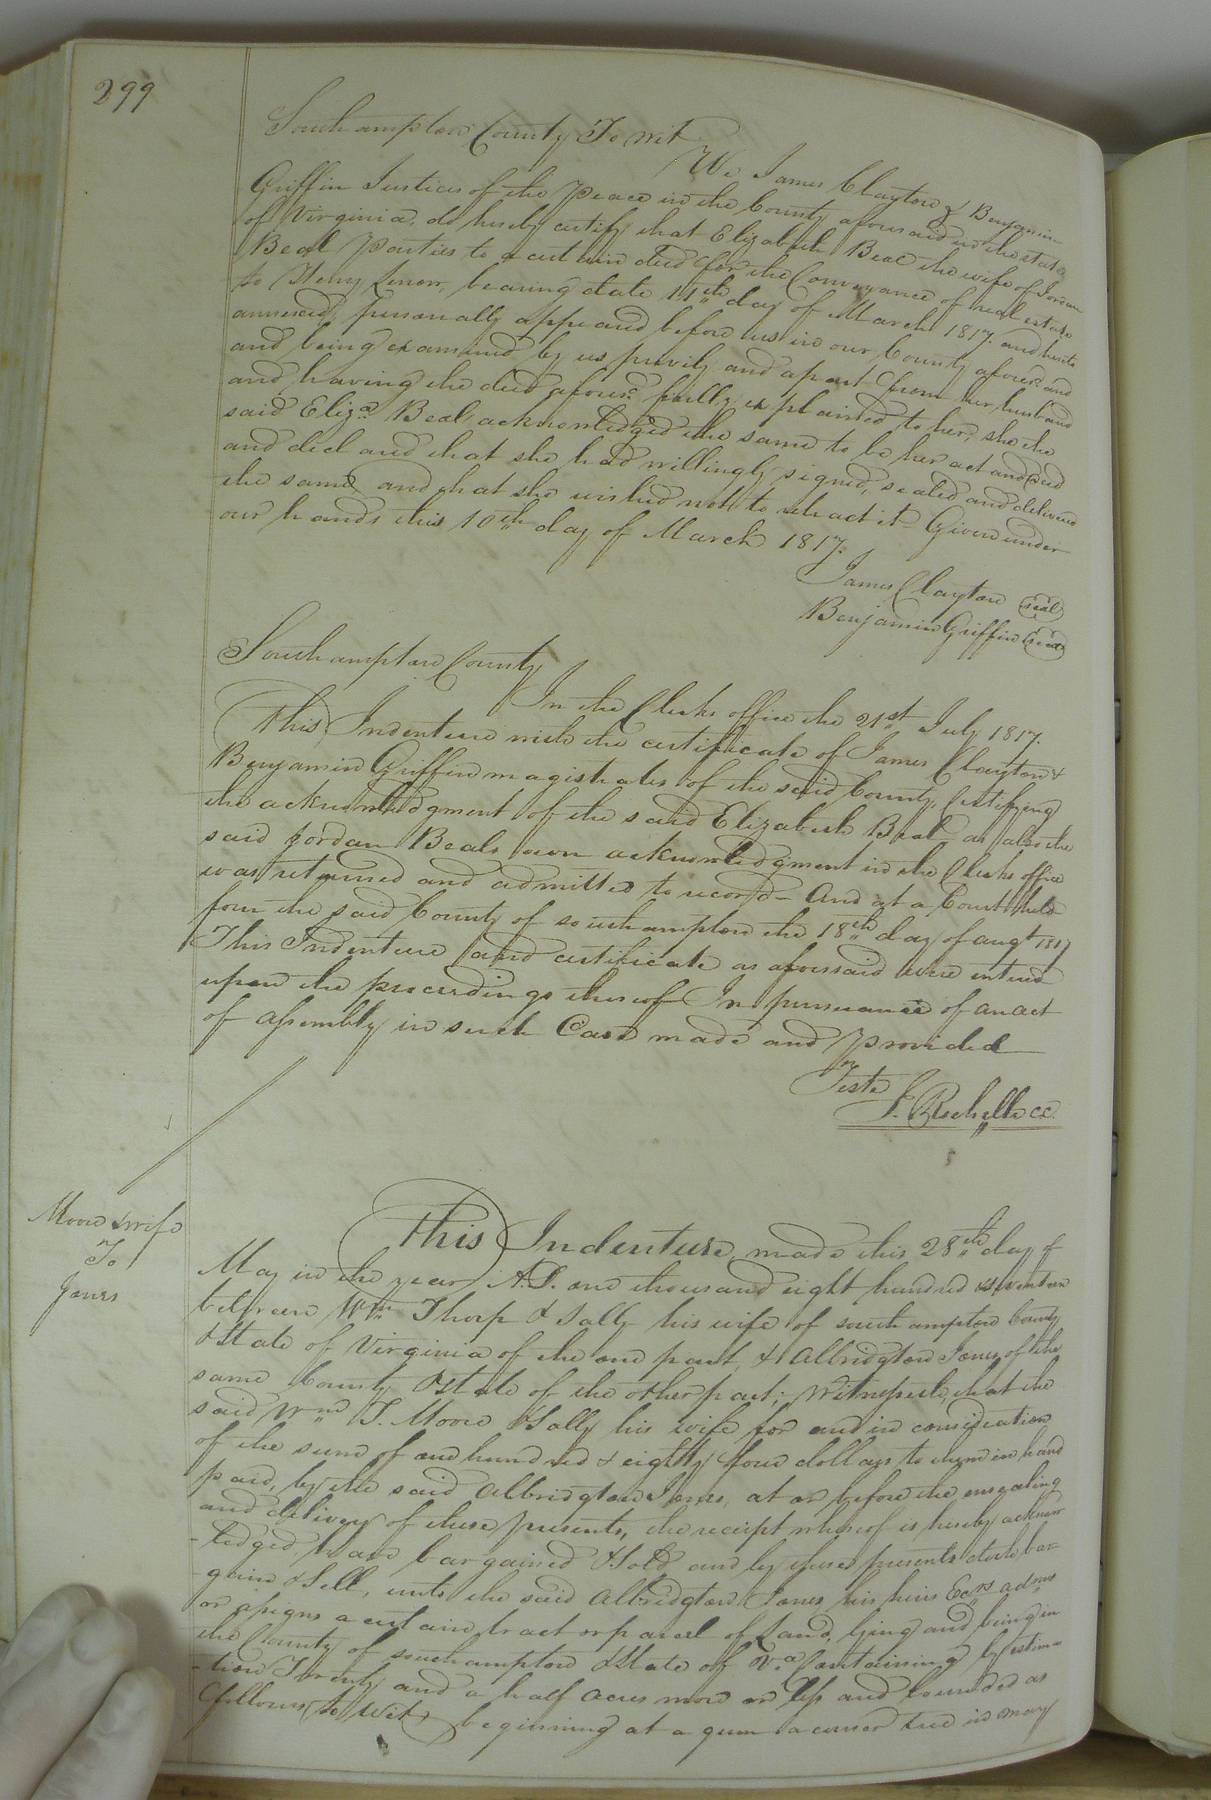 299
Southampton County To wit
We James Clayton & Benjamin
Griffin Justices of the Peace in the County aforesaid in the state
of Virginia, do hereby certify that Elizabeth Beal the wife of Jordan
Beal Parties to a certain deed for the Conveyance of real estate
to Henry bearing date 11th day of March 1817. and hereto
annexed, personally appeared before us in our County aforesd and
and being examined by us privily and apart from her husband
and having the deed aforesd fully explained to her, she the
said Eliza Beal, acknowledged the same to be her act and deed
and deed and that she had willingly signed, sealed and delivered
the same, and that she wished not to retract it Given under
our hands this 10th day of March 1817.
James Clayton (seal)
Benjamin Griffin (seal)
Southampton County
In the Clerks office the 21st July 1817.
This Indenture with the certificate of James Clayton &
Benjamin Griffin magistrates of the said County, Certifying
the acknowledgment of the said Elizabeth Beal as also the
said Jordan Beals own acknowledgment in the Clerks office
was returned and admitted to record - And at a Court held
four the said County of southampton the 18th day of augt 1817
This Indenture and certificate as aforesaid were entered
upon the proceedings thereof In pursuance of an act
of assembly in such Case made and provided
Teste
J. Rochelle cc.
Moore & wife
To
Jones
This Indenture, made this 28th day of
May in the year A.D. one thousand eight hundred & seventeen
between Wm Thorp & Sally his wife of southampton County
& State of Virginia of the one part, & Albridgton Jones of the
same County & state of the other part; Witnesseth, that the
said Wm T. Moore & Sally his wife for and in consideration
of the sum of one hundred & eighty four dollars to them in hand
paid, by the said Albridgton Jones, at or before the ensealing
and delivery of these presents, the receipt whereof is hereby acknow
-ledged, have bargained & Sold and by these presents doth bar-
-gain & Sell, unto the said Albridgton Jones his heirs Exrs adms
or assigns a certain tract or parcel of Land, lying and being in
the County of southampton & State of Va Containing by estima
-tion Twenty and a half acres more or less and bounded as
follows (to wit) beginning at a gum a corner tree in may